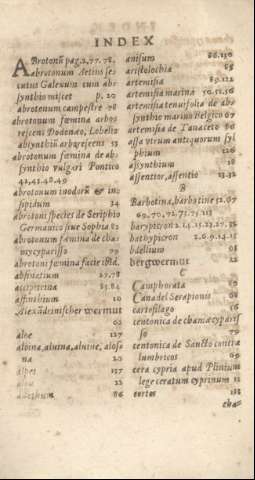 INDEX
ABrotonũ pag.2,77.78.
abrotonum Aetius secutus Galenum cum absynthio miscet p. 20
abrotonum campestre 78
abrotonum fœmina arborescens Dodonæo, Lobelio
absynthiũ arborescens 53
abrotonum fœmina de absynthio vulgari Pontico
42,43.48.49
abrotonum inodorũ & insipidum 34
abrotoni species de Seriphio
Germanico siue Sophia 82
abrotonum fœmina de chamæcyparisso 79
abrotoni fœmina facie ibid.
absinatium 27.78
accipitrina 83.84
assinthium 10
Alexãdrinischer wermut
62
aloe 127
aloina, aluina, alnine, alosona 20
alpes 157
aloa 22
adethum 86
anisum 86.130
aristolochia 65
artemisia 89.122
artemisia marina 50.51.56
artemisia tenuifolia de absynthio marino Belgico 67
artemisia de Tanaceto 96
assa vitum antequorum sylphium 126
assynthium 18
assentior, assentio 23.32
B
Barbotina, barbotine 52.67
69,70,72.73.75.113
baryptricon 2.14.15.23.27.35
bathypicron 2.6.9.14.15
bdellium 68
bergwermut 22
C
Camphorata 80
Cana del Serapione 68
cartofilago 66
centonica de chamæcyparisso 79
centonica de Sancto contra lumbricos 69
cera cypria apud Plinium
lege ceratum cyprinum 12
certes 138
cha=